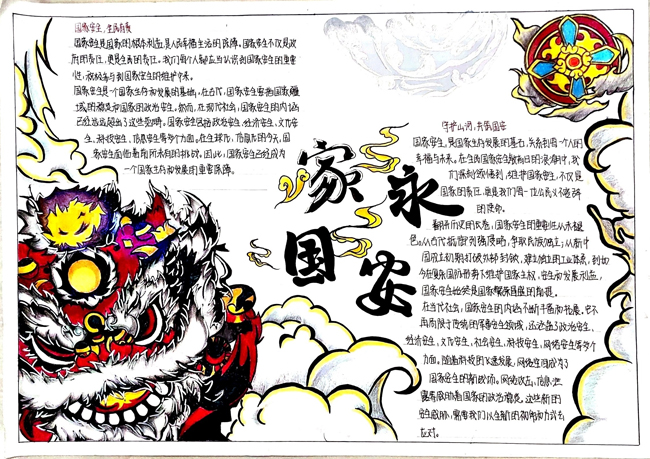 国家安全，全民有责
国家安全是国家的根本利益，是人民幸福生活的保障。国家安全不仅是政
府的责任，更是全民的责任。我们每个人都应当认识到国家安全的重要
性，积极参与到国家安全的维护中来。
国家安全是一个国家生存和发展的基础，在古代，国家安全主要指国家疆
域的稳定和国家的政治安全。然而，在现代社会，国家安全的内涵
已经远远超出了这些范畴。国家安全包括政治安全、经济安全、文化安
全、科技安全、信息安全等多个方面。在全球化、信息化的今天，国
家安全面临着前所未有的挑战。因此，国家安全已经成为
一个国家生存和发展的重要保障。
家永
国安
守护山河，共筑国安
国家安全，是国家生存发展的基石，关系到每一个人的
幸福与未来。在全民国家安全教育日的浪潮中，我
们深刻领悟到，维护国家安全，不仅是
国家的责任，更是我们每一位公民义不容辞
的使命。
翻开历史的长卷，国家安全的重要性从未褪
色。从古代抵御列强侵略，争取民族独立；从新中
国成立初期打破外部封锁，建立独立的工业体系，到如
今在复杂国际形势下维护国家主权、安全和发展利益，
国家安全始终是国家繁荣昌盛的前提。
在当代社会，国家安全的内涵不断丰富和拓展。它不
再局限于传统的军事安全领域，还涵盖了政治安全、
经济安全、文化安全、社会安全、科技安全、网络安全等多个
方面。随着科技的飞速发展，网络空间成为了
国家安全的新战场。网络攻击、信息泄
露等威胁着国家的政治稳定。这些新的
安全威胁，需要我们以全新的视角和方式去
应对。